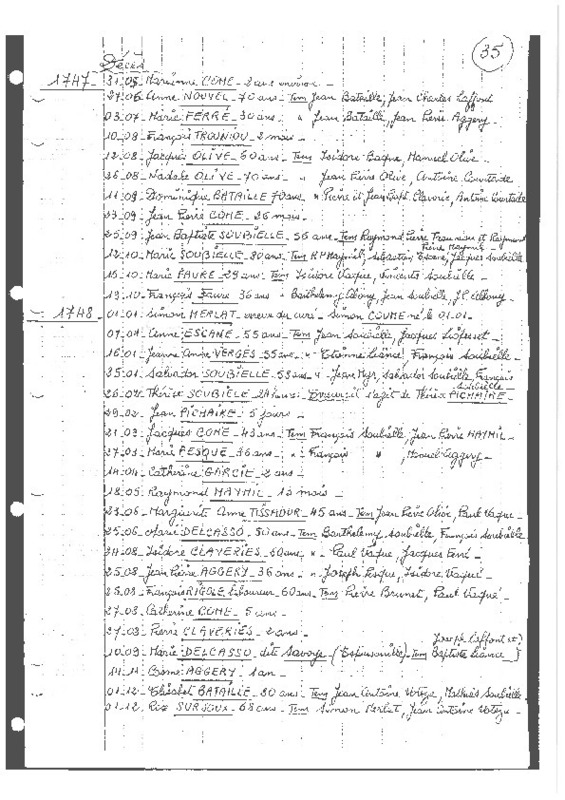 35
Décès
1747 - 31.05 - Marianne COME - 2 ans environ -
27.06 - Anne NOUVEL - 70 ans - Tem Jean Bataille, Jean Charles Laffont
03.07 - Marie FERRE - 30 ans - " Jean Bataille, Jean Pierre Aggery -
10.08 - François TROUNIOU - 2 mois -
12.08 - Jacques OLIVE - 60 ans - Tem Isidore Baque, Manuel Olive -
26.08 - Nadale OLIVE - 70 ans - " Jean Pierre Olive, Antoine Courtade
11.09 - Dominique BATAILLE 70 ans - " Pierre et Jean Claverie, Antoine Courtade
23.09 - Jean Pierre COME - 26 mois -
25.09 - Jean Baptiste SOUBIELLE - 56 ans - Tem Raymond Pierre et Raymond
Pierre Maymil -
12.10 - Marie SOUBIELLE - 30 ans - Tem Maymil, Sébastien Escane, Jacques Soubielle
15.10 - Marie FAURE - 29 ans - Tem Isidore Vaque, Soubielle -
19.10 - François Faure 36 ans - " Barthelemy Jean Soubielle,
1748 - 01.01 - Simon MERLAT - erreur du curé - Simon COUME né le 01.01 -
07.01 - Anne ESCANE - 55 ans - Tem Jean Soubielle, Jacques
16.01 - Jeanne Anne VERGES - 55 ans - " Etienne Liance, François Soubielle -
25.01 - Salvador SOUBIELLE - 58 ans - " Jean Salvador Soubielle, François
Soubielle -
26.02 - Thérèse SOUBIELE - 24 - Erreur, il s'agit de Thérèse PICHAIRE -
29.02 - Jean PICHAIRE - 5 jours -
21.03 - Jacques COME - 43 ans - Tem François Soubielle, Jean Pierre MAYMIL -
27.03 - Marie PESQUE - 36 ans - " François " , Manuel Aggery -
14.04 - Catherine GARCIE - 2 ans -
18.05 - Raymond MAYMIL - 15 mois -
23.06 - Marguerite Anne TISSADOUR - 45 ans - Tem Jean Pierre Olive, Paul Vaque -
25.06 - Marie DELCASSO - 50 ans - Tem Barthelemy Soubielle, François Soubielle
24.08 - Isidore CLAVERIES - 60 ans - " Paul Vaque, Jacques
25.08 - Jean Pierre AGGERY - 36 ans - " Joseph Pesque, Isidore Vaque -
25.03 - François RIGOLE laboureur - 60 ans - Tem Pierre Brunet, Paul Vaque -
27.03 - Catherine COME - 5 ans -
27.03 - Pierre CLAVERIES - 2 ans -
Joseph Laffont et
10.09 - Marie DELCASSO - dite Savoye - (Espousouille) - Tem Baptiste Liance
14.11 - Côme AGGERY - 1 an -
01.12 - Elisabet BATAILLE - 80 ans - Tem Jean Antoine Mathieu Soubielle
01.12 - Rose SURJOUS - 68 ans - Tem Simon Merlat, Jean Antoine